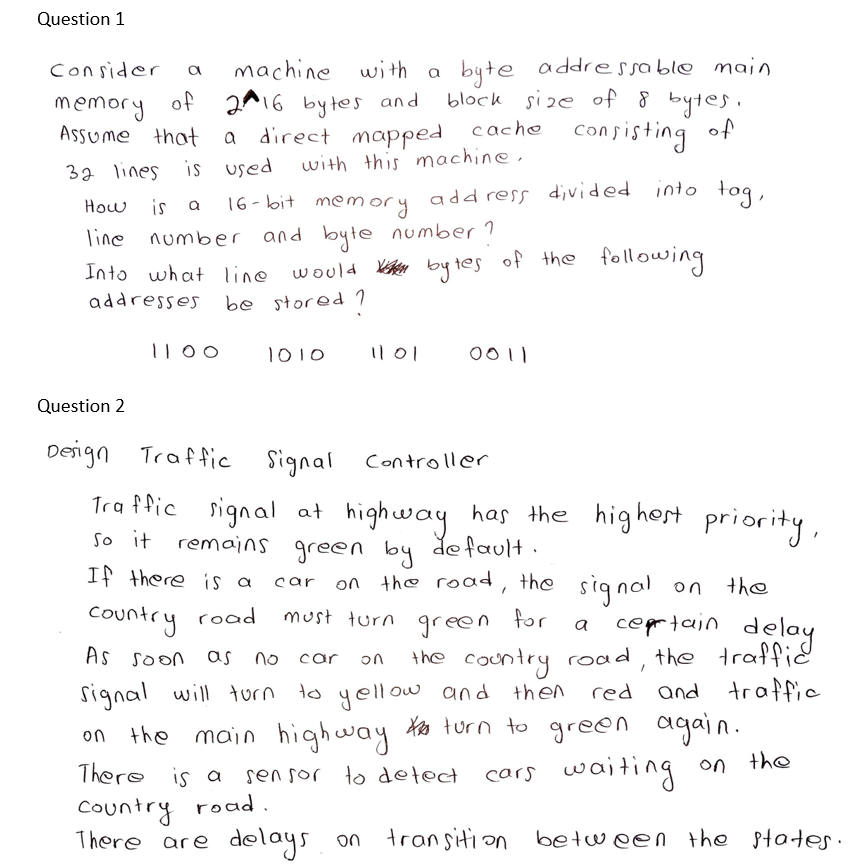 Question 1
Consider a machine with a byte addressable main
memory of 2^16 bytes and block size of 8 bytes.
Assume that a direct mapped cache consisting of
32 lines is used with this machine.
How is a 16-bit memory address divided into tag,
line number and byte number?
Into what line would bytes of the following
addresses be stored?
1100 1010 1101 0011
Question 2
Design Traffic Signal Controller
Traffic signal at highway has the highest priority,
so it remains green by default.
If there is a car on the road, the signal on the
country road must turn green for a certain delay
As soon as no car on the country road, the traffic
signal will turn to yellow and then red and traffic
on the main highway turn to green again.
There is a sensor to detect cars waiting on the
country road.
There are delays on transition between the states.